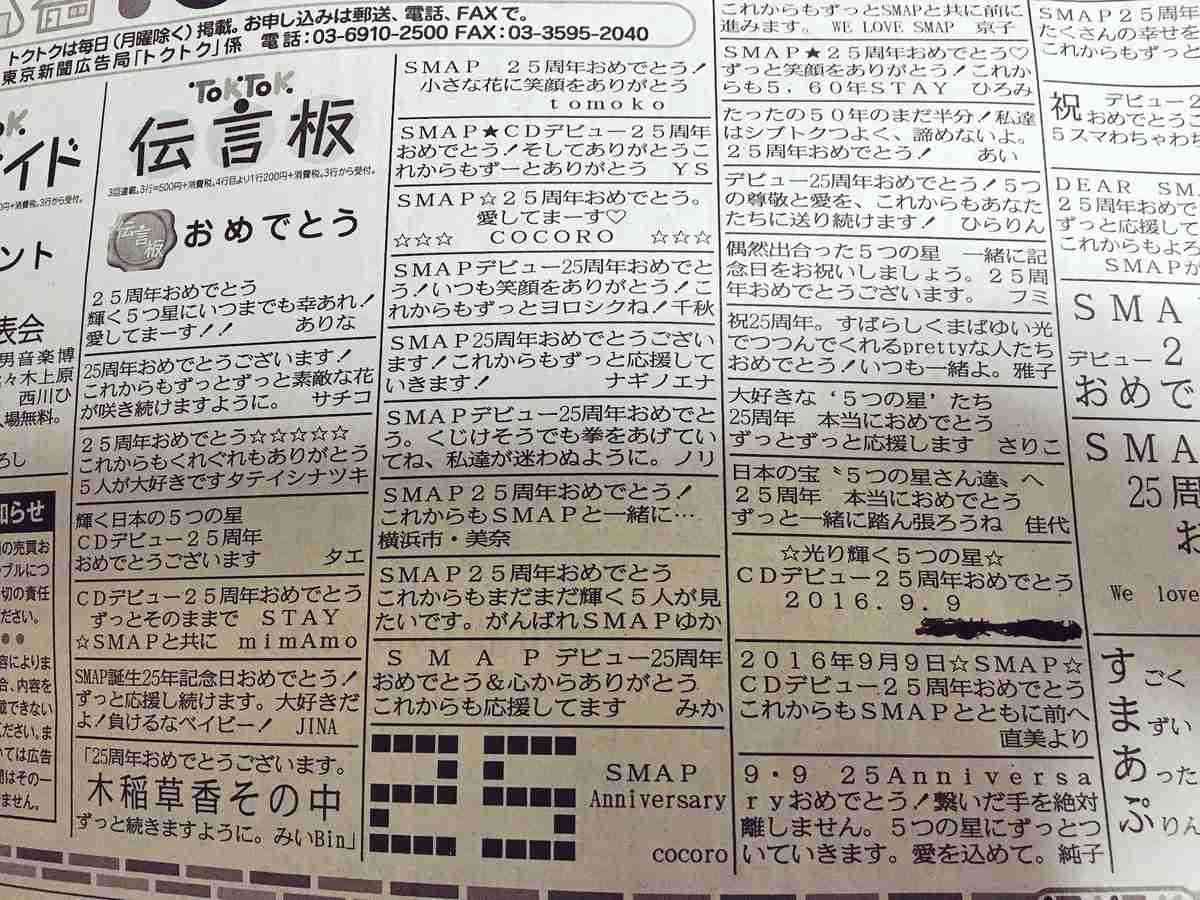 トクトクは毎日(月曜除く)掲載。お申し込みは郵送、電話、FAXで。
東京新聞広告局「トクトク」係 電話:03-6910-2500 FAX:03-3595-2040
イド
0円+消費税。3行から受付。
ント
表会
男音楽博
々木上原
西川ひ
入場無料。
ろし
知らせ
の売買お
ブルにつ
切の責任
ださい。
●●
容によりま
合、内容を
載できない
ださい。ま
いては広告
聞はその一
ません。
TOKTOK
伝言板
3回連載。3行=500円+消費税。4行目より1行200円+消費税。3行から受付。
伝言板
おめでとう
25周年おめでとう
輝く5つ星にいつまでも幸あれ!
愛してまーす!! ありな
25周年おめでとうございます!
これからもずっとずっと素敵な花
が咲き続けますように。 サチコ
25周年おめでとう☆☆☆☆☆
これからもくれぐれもありがとう
5人が大好きですタテイシナツキ
輝く日本の5つの星
CDデビュー25周年
おめでとうございます タエ
CDデビュー25周年おめでとう
ずっとそのままで STAY
☆SMAPと共に mimAmo
SMAP誕生25年記念日おめでとう!
ずっと応援し続けます。大好きだ
よ!負けるなベイビー! JINA
「25周年おめでとうございます。
木稲草香その中
ずっと続きますように。みいBin」
SMAP 25周年おめでとう!
小さな花に笑顔をありがとう
tomoko
SMAP★CDデビュー25周年
おめでとう!そしてありがとう
これからもずーとありがとう YS
SMAP☆25周年おめでとう。
愛してまーす♡
☆☆☆ COCORO ☆☆☆
SMAPデビュー25周年おめでと
う!いつも笑顔をありがとう!こ
れからもずっとヨロシクね!千秋
SMAP25周年おめでとうござい
ます!これからもずっと応援して
いきます! ナギノエナ
SMAPデビュー25周年おめでと
う。くじけそうでも拳をあげてい
てね、私達が迷わぬように。ノリ
SMAP25周年おめでとう!
これからもSMAPと一緒に…
横浜市・美奈
SMAP25周年おめでとう
これからもまだまだ輝く5人が見
たいです。がんばれSMAPゆか
SMAPデビュー25周年
おめでとう&心からありがとう
これからも応援してます みか
25
SMAP
Anniversary
cocoro
これからもずっとSMAPと共に前に
進みます。 WE LOVE SMAP 京子
SMAP★25周年おめでとう♡
ずっと笑顔をありがとう!これか
らも5、60年STAY ひろみ
たったの50年のまだ半分!私達
はシブトクつよく、諦めないよ。
25周年おめでとう! あい
デビュー25周年おめでとう!5つ
の尊敬と愛を、これからもあなた
たちに送り続けます! ひらりん
偶然出合った5つの星 一緒に記
念日をお祝いしましょう。25周
年おめでとうございます。 フミ
祝25周年。すばらしくまばゆい光
でつつんでくれるprettyな人たち
おめでとう!いつも一緒よ。雅子
大好きな‘5つの星’たち
25周年 本当におめでとう
ずっとずっと応援します さりこ
日本の宝〝5つの星さん達〟へ
25周年 本当におめでとう
ずっと一緒に踏ん張ろうね 佳代
☆光り輝く5つの星☆
CDデビュー25周年おめでとう
2016.9.9
2016年9月9日☆SMAP☆
CDデビュー25周年おめでとう
これからもSMAPとともに前へ
直美より
9・9 25Anniversa
ryおめでとう!繋いだ手を絶対
離しません。5つの星にずっとつ
いていきます。愛を込めて。純子
SMAP25周年
たくさんの幸せを
これからもずっと
祝 デビュー2
おめでとうご
5スマわちゃわちゃ
DEAR SM
25周年おめでと
ずっと応援して
これからもよろ
SMAPが
SMA
デビュー2
おめで
SMA
25周
お
We love
すごく
まずい
あった
ぷりん